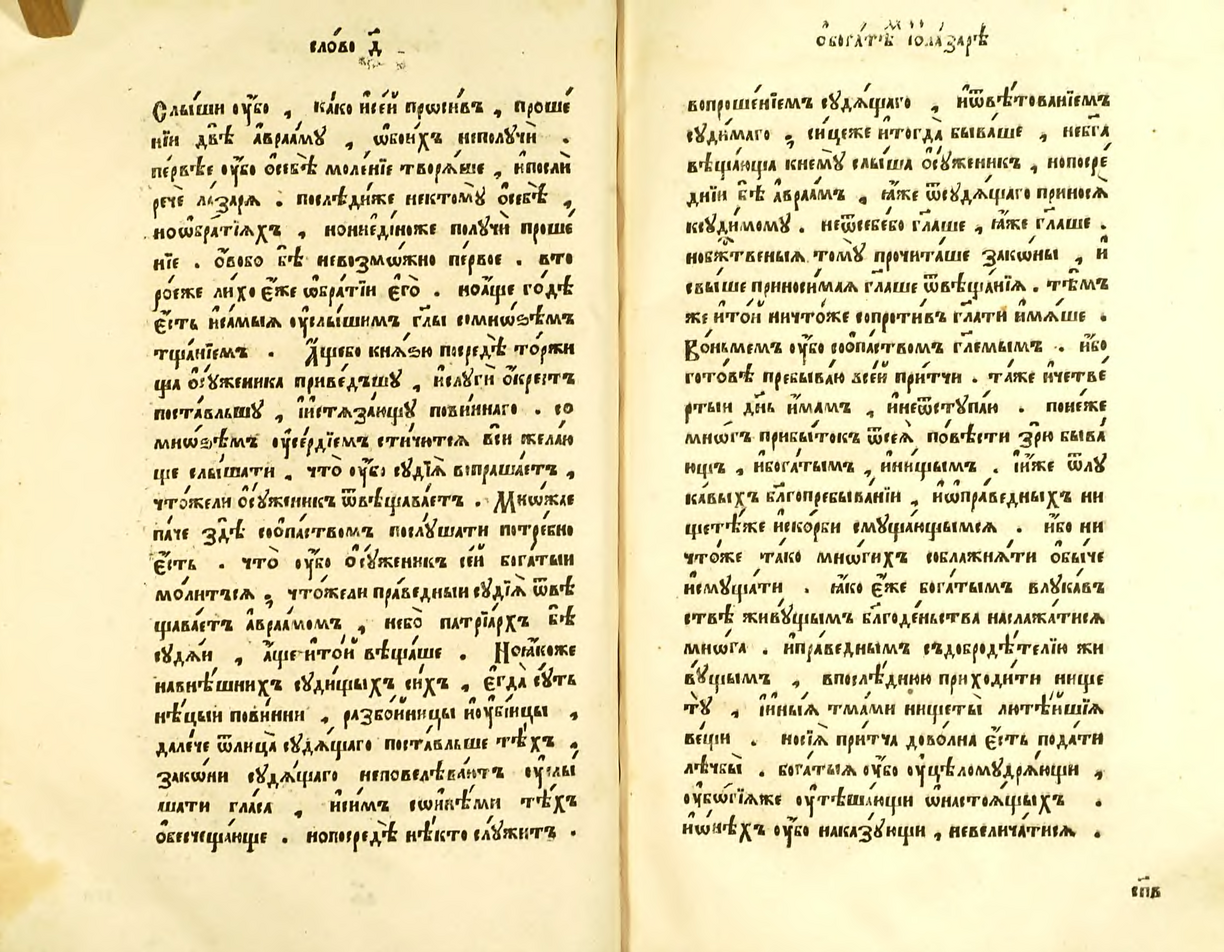 сло́во д҃
Слы́ши оу҆́бо , ка́ко и҆се́й прѡси́въ , проше́
нїи двѣ̀ а҆враа́мꙋ , ѡ҆бои́хъ неполꙋчѝ .
пе́рвѣе оу҆́бо ѡ҆себѣ̀ моле́нїе творѧ́ше , и҆послѝ
речѐ ла́зарѧ . послѣди́же нектомꙋ̀ ѡ҆себѣ̀ ,
ноѡ҆бра́тїѧхъ , нонинеѐди́ноже полꙋчѝ проше́
нїе . ѻ҆́вобо бѣ̀ невозмо́жно пе́рвое . вто
ро́еже ли́хо є҆́же ѡ҆брати́и є҆гѡ̀ . ноа҆́ще го́дѣ
є҆́сть и҆са́мыѧ оу҆слы́шимъ гл҃ы сомно́зѣмъ
тща́нїемъ . А҆́щебо кнѧ́зю посредѣ̀ то́ржи
ща ѡ҆сꙋ́женика приве́дъшꙋ , и҆слꙋгѝ ѡ҆́крестъ
поста́вльшꙋ , и҆и҆стѧза́ющꙋ пови́ннаго . со
мно́зѣмъ оу҆се́рдїемъ стичи́тсѧ всѝ жела́ю
ще слы́шати , что̀ оу҆́бо сꙋдїѧ̀ вопраша́етъ ,
что́жели ѡ҆сꙋ́женикъ ѿвѣщава́етъ . Мно́жае
па́че здѣ̀ соѻ҆па́ствомъ послꙋ́шати потре́бно
є҆́сть . что̀ оу҆́бо ѡ҆сꙋ́женикъ се́й бога́тыи
мо́литъсѧ , что́жели пра́ведныи сꙋдїѧ̀ ѿвѣ
щава́етъ а҆враа́момъ , небо̀ патрїа́рхъ бѣ̀
сꙋдѧ́и , а҆́ще и҆то́й вѣща́ше . Ноꙗ҆́коже
навнѣ́шнихъ сꙋди́щыхъ си́хъ , є҆гда̀ сꙋ́ть
нѣ́цыи пови́нни , разбо́йницы и҆оу҆бі́йцы ,
дале́че ѿлица̀ сꙋдѧ́щаго поста́вльше тѣ́хъ ,
зако́ни сꙋдѧ́щаго неповелѣва́ютъ оу҆слы́
шати гла́са , и҆си́мъ сѡи҆нѣ́ми тѣ́хъ
ѡ҆безчеща́юще . нопосредѣ̀ нѣ́кто слꙋ́житъ .
ѡ҆бога́тѣ и҆ѡла́зарѣ
вопроше́нїемъ сꙋдѧ́щаго , и҆ѿвѣ́тованїемъ
сꙋди́маго , си́цеже и҆тогда̀ быва́ше , небг҃а
вѣща́юща кнемꙋ̀ слы́ша ѡ҆сꙋ́женикъ , нопосре́
днїи бѣ̀ а҆враа́мъ , ꙗ҆́же ѿсꙋдѧ́щаго приносѧ̀
ксꙋди́момꙋ . неѿсебѐбо гл҃аше , ꙗ҆́же гл҃аше .
нобж҃твеныѧ томꙋ̀ прочита́ше зако́ны , и҆
свы́ше приноси́маѧ гл҃аше ѿвѣща́нїѧ . тѣ́мъ
же и҆то́й ничто́же сопроти́въ гл҃ати и҆мѧ́ше .
Во́ньмемъ оу҆́бо соѻ҆па́ствомъ гл҃емымъ . и҆́бо
гото́вѣ пребыва́ю всей при́тчи . та́же и҆четве́
ртыи дн҃ь и҆́мамъ , и҆неѿстꙋпа́ю . поне́же
мно́гъ прибы́токъ ѿсеѧ̀ по́вѣсти зрю̀ быва́
ющъ , и҆бога́тымъ , и҆ни́щымъ . и҆и҆́же ѿлꙋ
ка́выхъ бл҃гопребыва́нїи , и҆ѡ҆пра́ведныхъ ни
щетѣ́же и҆ско́рби смꙋща́ющымсѧ . и҆́бо ни
что́же та́ко мно́гихъ соблажнѧ́ти ѡ҆бы́че
и҆смꙋща́ти . ꙗ҆́ко є҆́же бога́тымъ влꙋка́въ
ствѣ живꙋ́щымъ бл҃годе́ньства наслажа́тисѧ
мно́га . и҆пра́веднымъ съдобродѣ́телїю жи
вꙋ́щымъ , впослѣ́днюю приходи́ти нище
тꙋ̀ , и҆и҆ны́ѧ тма́ми нищеты̀ лютѣ́йшїѧ
ве́щи . носїѧ̀ при́тча дово́лна є҆́сть пода́ти
лѣ́чбы . бога́тыѧ оу҆́бо оу҆цѣломꙋ́дрѧющи ,
оу҆бо́гїѧже оу҆тѣша́ющи ѡ҆настоѧ́щыхъ .
и҆ѻ҆́нѣхъ оу҆́бо наказꙋ́ющи , невелича́тисѧ .
сп҃в